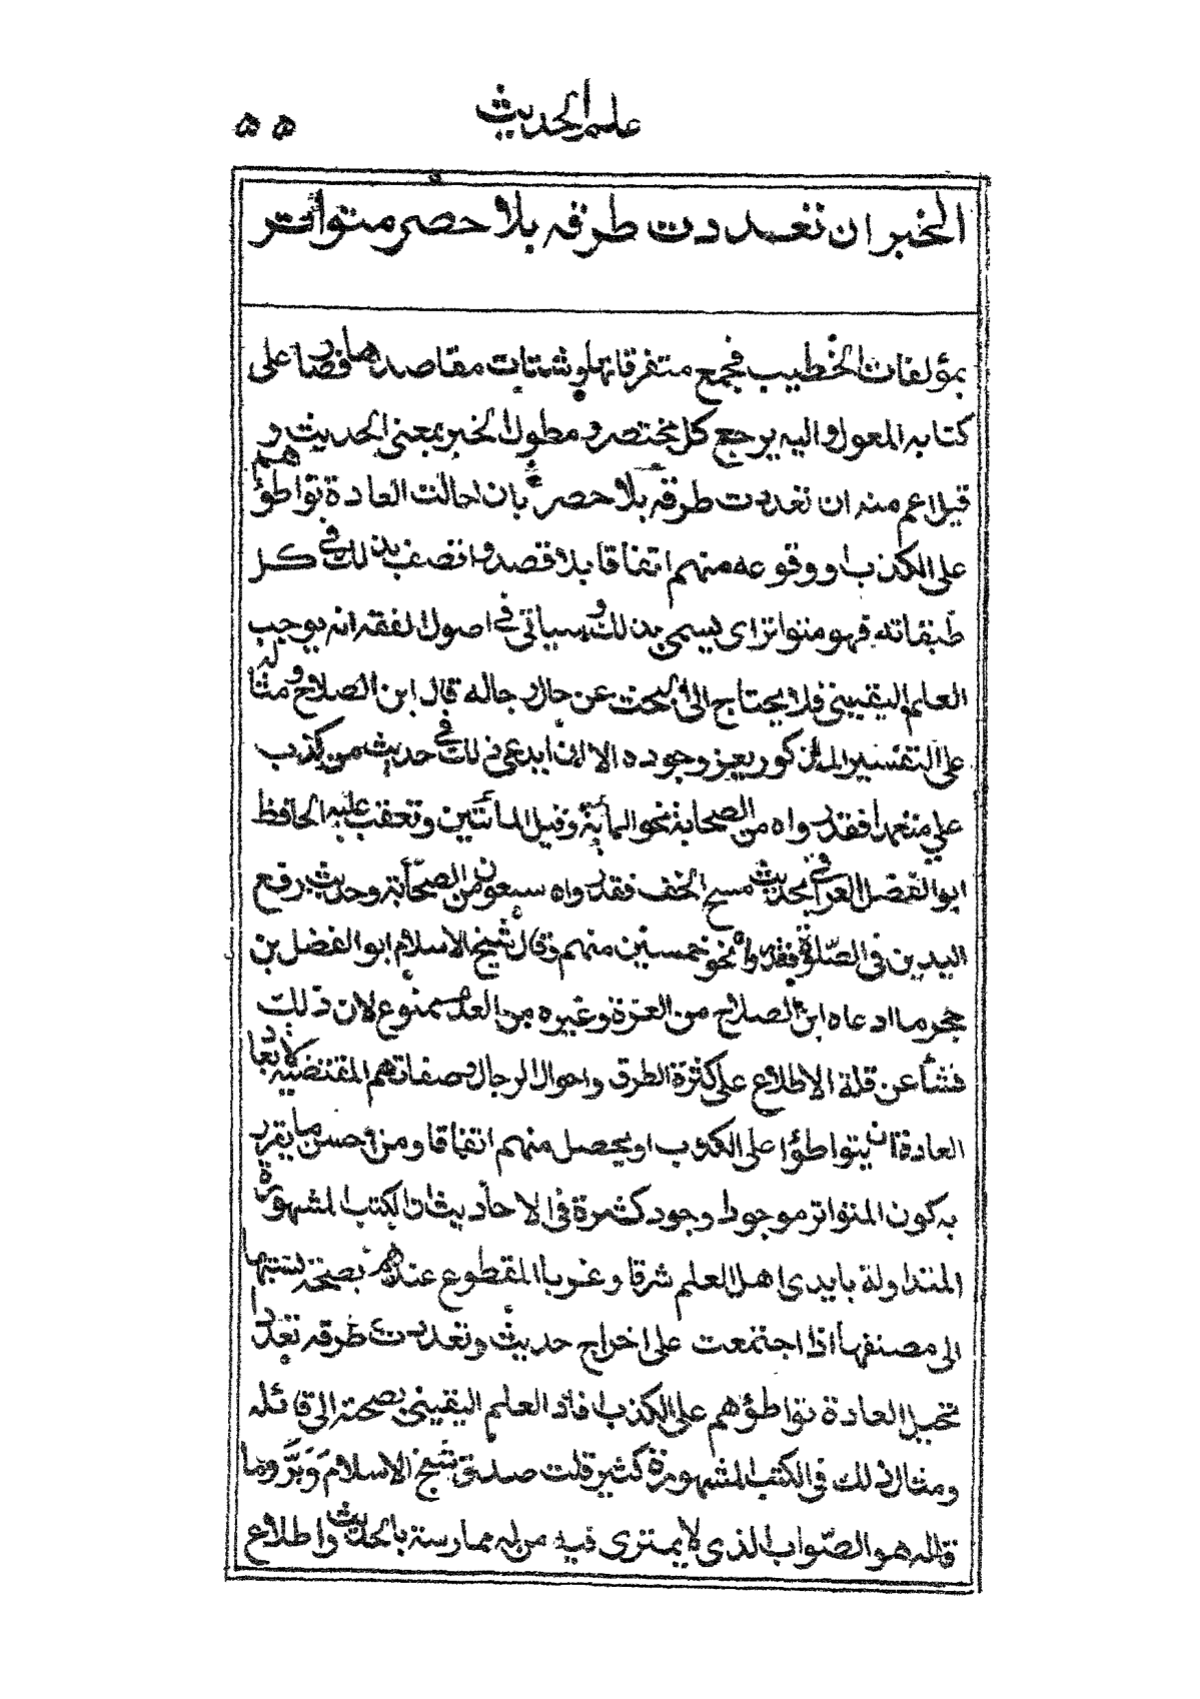 علم الحديث ٥٥
الخبر ان تعددت طرقه بلا حصر متواتر
بمؤلفات الخطيب فجمع متفرقاتها وشتات مقاصدها فصار على
كتابه المعول واليه يرجع كل مختصر ومطول الخبر بمعنى الحديث و
قيل اعم منه ان تعددت طرقه بلا حصر بان احالت العادة تواطؤهم
على الكذب او وقوعه منهم اتفاقا بلا قصد واتصف بذلك في كل
طبقاته فهو متواتر اى يسمى بذلك وسياتي في اصول الفقه انه يوجب
العلم اليقينى فلا يحتاج الى البحث عن حال رجاله قال ابن الصلاح ومثاله
على التفسير المذكور يعز وجوده الا ان يدعى ذلك في حديث من كذب
علي متعمدا فقد رواه من الصحابة نحو المأية وقيل المأتين وتعقب عليه الحافظ
ابو الفضل العراقي بحديث مسح الخف فقد رواه سبعون من الصحابة وحديث رفع
اليدين فى الصلوة فقد رواه نحو خمسين منهم وقال شيخ الاسلام ابو الفضل بن
حجر ما ادعاه ابن الصلاح من العزة وغيره من العدم ممنوع لان ذلك
نشأ عن قلة الاطلاع على كثرة الطرق واحوال الرجال وصفاتهم المقتضية لابعاد
العادة ان يتواطؤا على الكذب او يحصل منهم اتفاقا ومن احسن ما يقرر
به كون المتواتر موجودا وجود كثرة فى الاحاديث ان الكتب المشهورة
المتداولة بايدى اهل العلم شرقا وغربا المقطوع عندهم بصحة نسبتها
الى مصنفيها اذا اجتمعت على اخراج حديث وتعددت طرقه تعددا
تحيل العادة تواطؤهم على الكذب افاد العلم اليقينى بصحته الى قائله
ومثال ذلك فى الكتب المشهورة كثير قلت صدق شيخ الاسلام وبر وما
قاله هو الصواب الذى لا يمترى فيه من له ممارسة بالحديث واطلاع